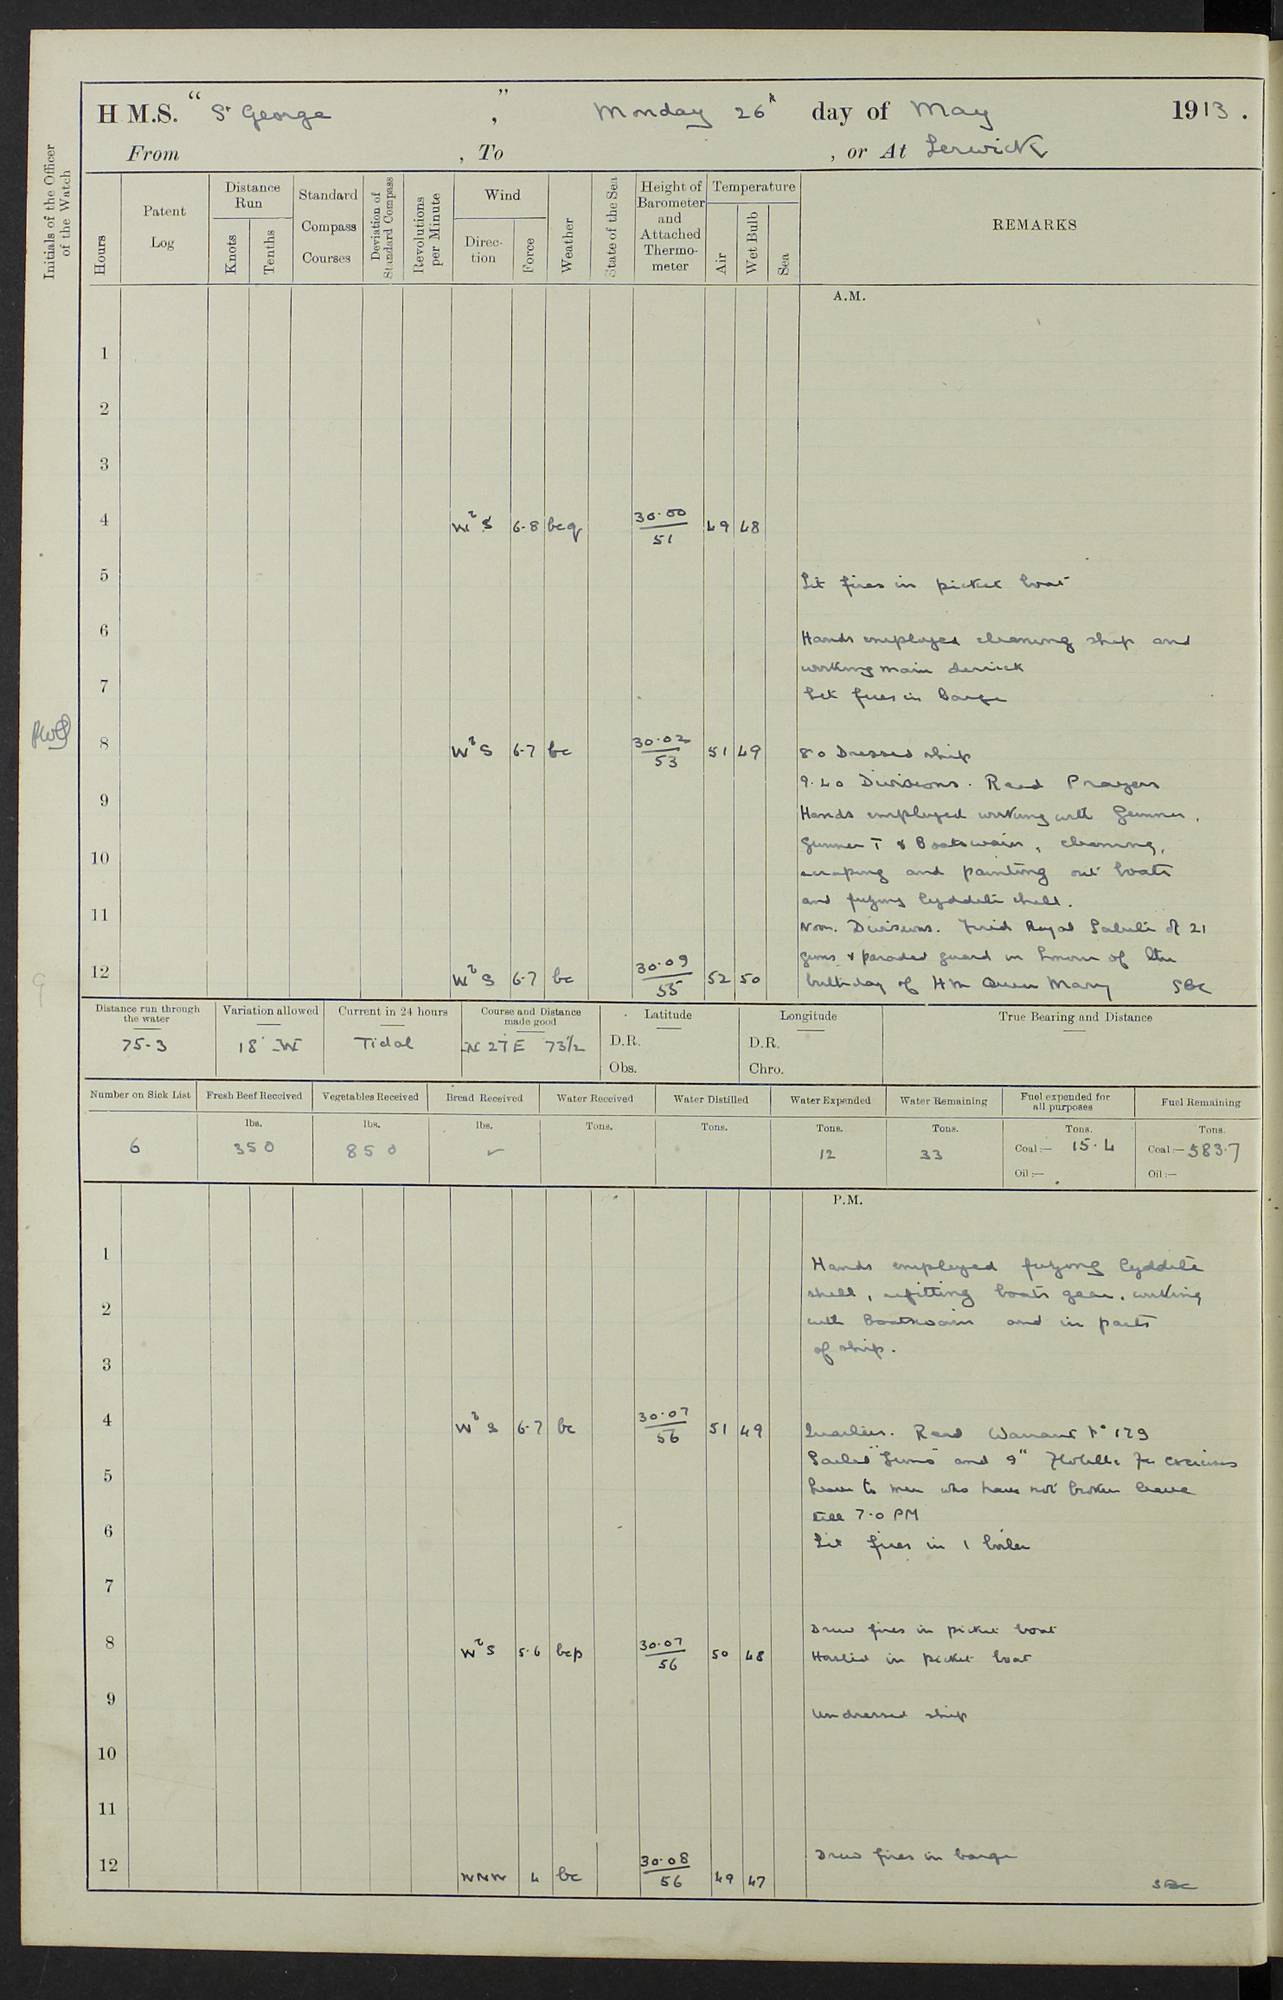 H.M.S. "St George", Monday 26th day of May 1913.
From , To , or At Lerwick
Initials of the Officer of the Watch
Hours
Patent Log
Distance Run
Knots
Tenths
Standard Compass Courses
Deviation of Standard Compass
Revolutions per Minute
Wind
Direction
Force
Weather
State of the Sea
Height of Barometer and Attached Thermometer
Temperature
Air
Wet Bulb
Sea
REMARKS
A.M.
1
2
3
4 WbS 6-8 bcq 30.00 51 49 48
5 Lit fires in picket boat
6 Hands employed cleaning ship and
working main derrick
7 Lit fires in Barge
8 WbS 6-7 bc 30.02 53 51 49 8.0 Dressed ship
9.40 Divisions. Read Prayers
9 Hands employed working with Gunner,
Gunner T & Boatswain, cleaning,
10 scraping and painting out boats
and fuzing lyddite shell.
11 Noon. Divisions. Fired Royal Salute of 21
guns & paraded guard in honour of the
12 WbS 6-7 bc 30.09 55 52 50 birthday of HM Queen Mary SBC
Distance run through the water 75.3
Variation allowed 18° W
Current in 24 hours Tidal
Course and Distance made good N 27 E 73½
Latitude
D.R.
Obs.
Longitude
D.R.
Chro.
True Bearing and Distance
Number on Sick List 6
Fresh Beef Received lbs. 350
Vegetables Received lbs. 850
Bread Received lbs. ✓
Water Received Tons.
Water Distilled Tons.
Water Expended Tons. 12
Water Remaining Tons. 33
Fuel expended for all purposes Tons. Coal:— 15.4 Oil:—
Fuel Remaining Tons. Coal:— 583.7 Oil:—
P.M.
1 Hands employed fuzing lyddite
shell, refitting boats gear, working
2 with Boatswain and in parts
3 of ship.
4 WbS 6-7 bc 30.07 56 51 49 Quarters. Read Warrant No 179
Sailed and 9" Flotilla for exercises
5 Leave to men who have not broken leave
till 7.0 PM
6 Lit fires in 1 boiler
7
Drew fires in picket boat
8 WbS 5-6 bcp 30.07 56 50 48 Hoisted in picket boat
9 Undressed ship
10
11
Drew fires in barge
12 WNW 4 bc 30.08 56 49 47 SBC